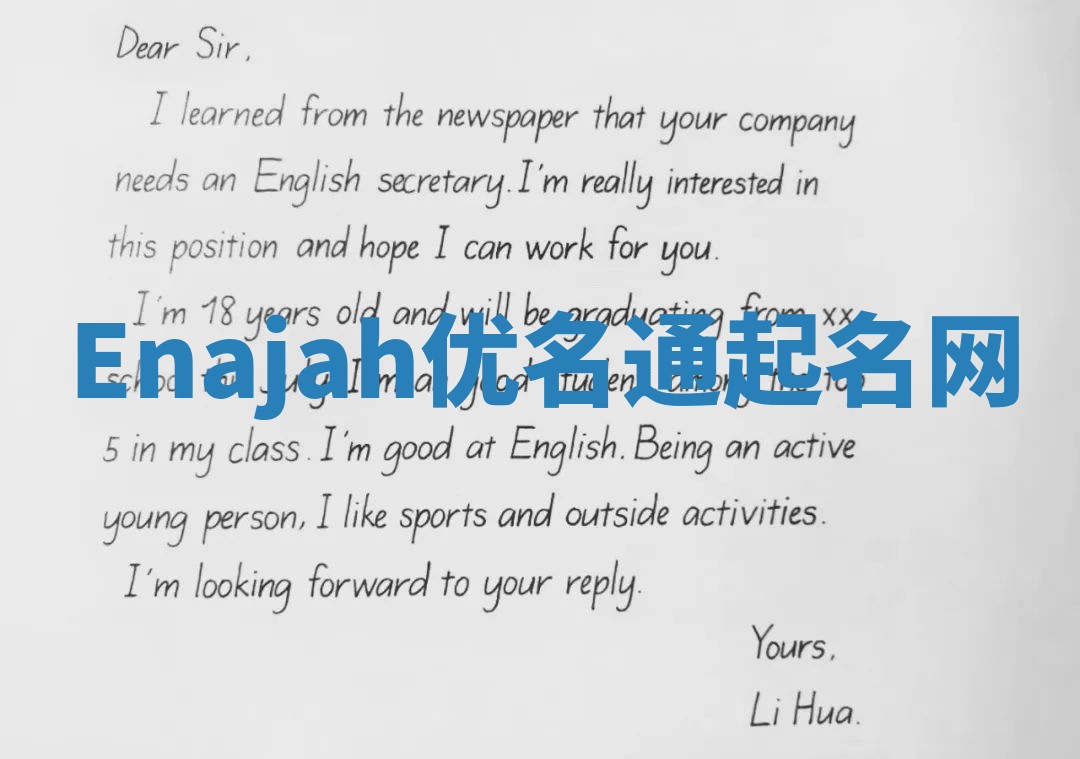 Dear Sir,
I learned from the newspaper that your company
needs an English secretary. I'm really interested in
this position and hope I can work for you.
I'm 18 years old and will be graduating from xx
Enajah优名通起名网
school this July. I'm a good student among the top
5 in my class. I'm good at English. Being an active
young person, I like sports and outside activities.
I'm looking forward to your reply.
Yours,
Li Hua.